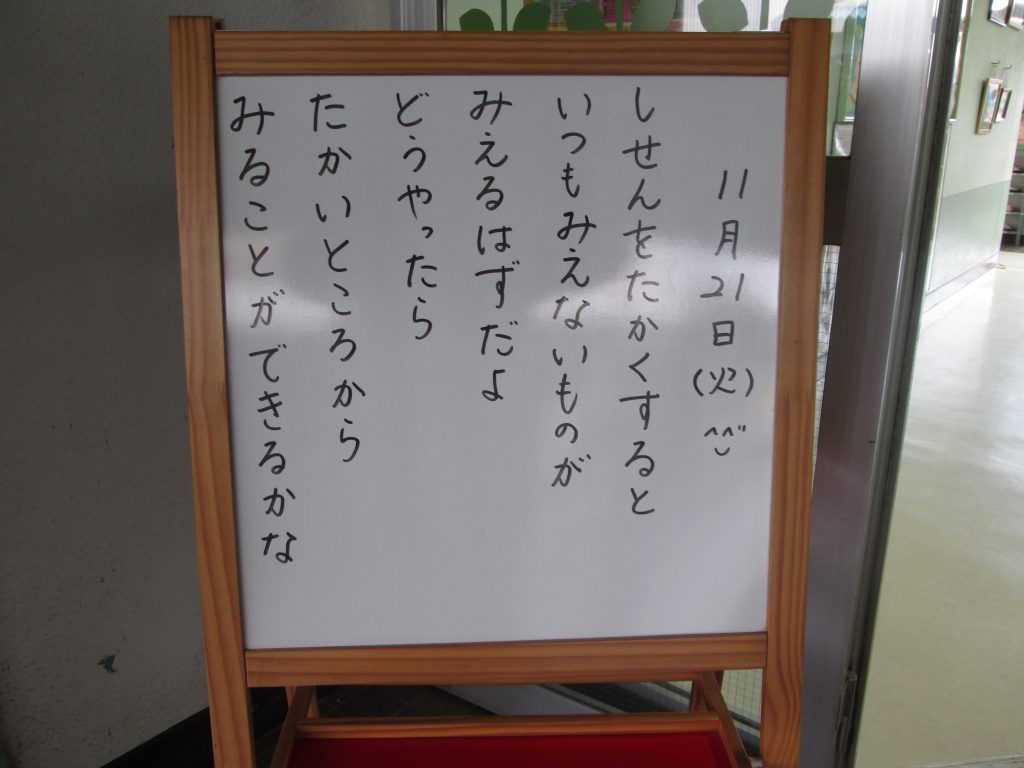 11月21日(火)^^
しせんをたかくすると
いつもみえないものが
みえるはずだよ
どうやったら
たかいところから
みることができるかな